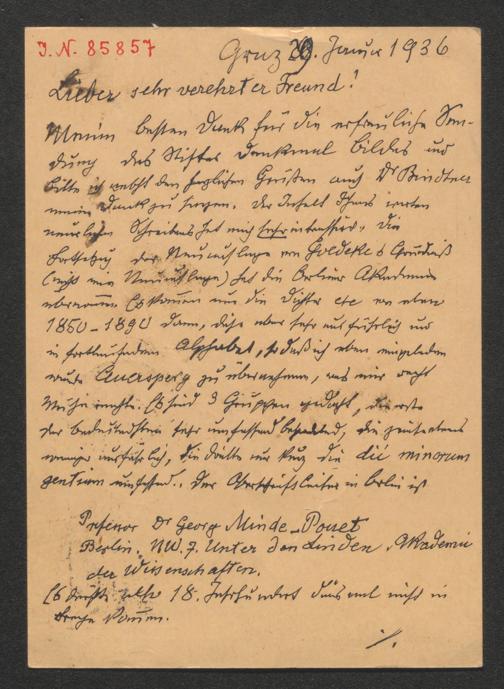 I. N. 85857
Graz 29. Januar 1936
Lieber sehr verehrter Freund!
Meinen besten Dank für die erfreuliche Sen-
dung des Stifter Denkmal Bildes und
bitte ich nebst den herzlichen Grüßen auch Dr Bindtner
meinen Dank zu sagen. Der Inhalt Ihres werten
neuerlichen Schreibens hat mich sehr interessiert. Die
Fortsetzung der Neuauflage von Goedekes Grundriß
(nicht eine Neuauflage) hat die Berliner Akademie
übernommen. Es kommen nur die Dichter etc von etwa
1850–1890 dann, diese aber sehr ausführlich und
in fortlaufendem Alphabet, so daß ich eben eingeladen
wurde Auersperg zu übernehmen, was mir recht
Mühe machte. Es sind 3 Gruppen gedacht, die erste
der bedeutendsten sehr umfassend behandelnd, die zweite etwas
weniger ausführlich, die dritte nur kurz die die minorum
gentium umfassend. Der Oberschriftleiter in Berlin ist
Professor Dr Georg Minde-Pouet
Berlin. NW. 7. Unter den Linden. Akademie
der Wissenschaften.
Es dürfte also 18. Jahrhundert diesmal nicht in
Frage kommen.
./.